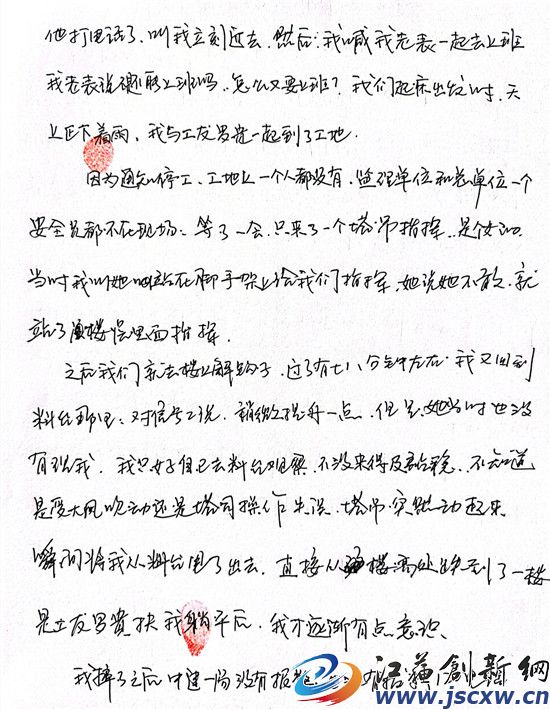 他打电话了,叫我立刻过去,然后:我喊我老表一起去上班
我老表说礼拜上班吗,怎么又要上班?我们起床出发时,天
上正下着雨,我与工友罗贵一起到了工地.
因为通知停工、工地上一个人都没有,监理单位和总单位一个
安全员都不在现场:等了一会,只来了一个塔吊指挥,是女的.
当时我叫她站在脚手架上给我们指挥,她说她不敢,就
站了楼层里面指挥.
之后我们就去楼上解钩子,过了有七八分钟左右,我又回到
料台那里:对信号工说,稍微提升一点,但是,她当时也没
有理我,我只好自己去料台观察,不没来得及看稳,不知道
是受大风吹动还是塔司操作失误,塔吊突然动起来
瞬间将我从料台甩了出去,直接从楼高处跌到了一楼
是工友罗贵扶我躺平后,我才逐渐有点意识、
我摔了之后中建一局没有报
江苏创新网
www.jscxw.cn